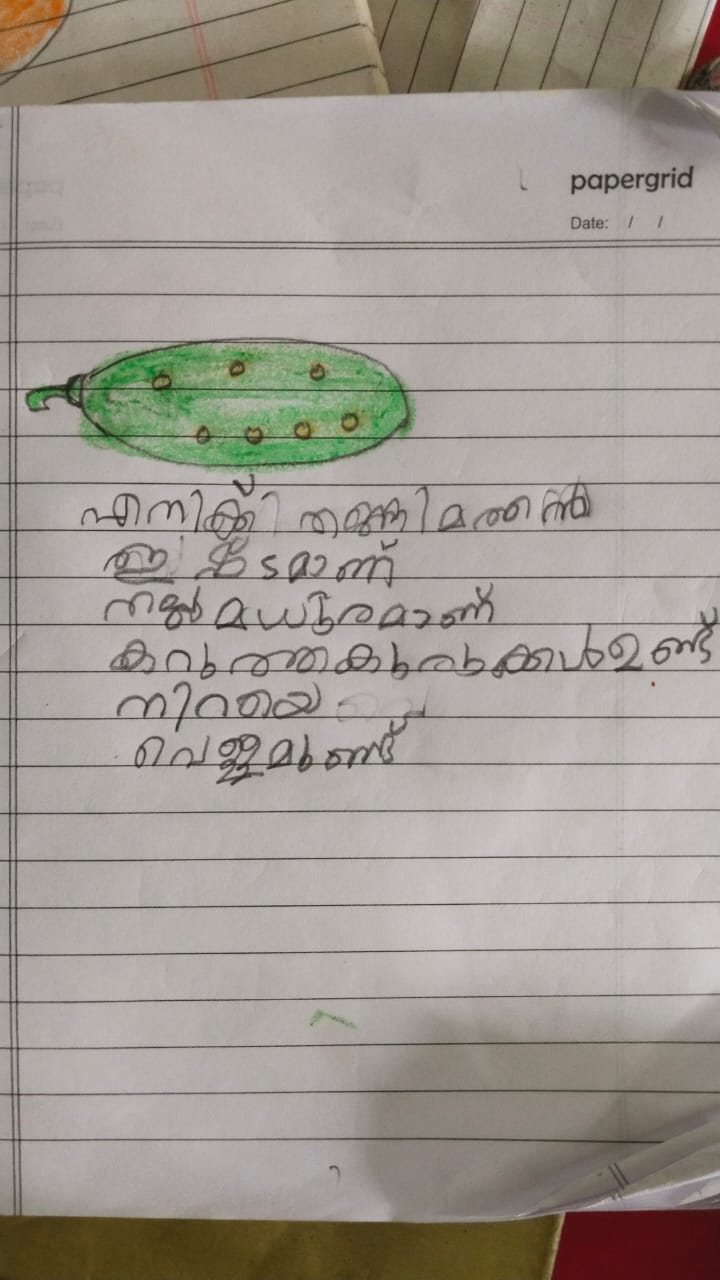 papergrid
Date: / /
എനിക്ക് തണ്ണിമത്തൻ
ഇഷ്ടമാണ്
നല്ല മധുരമാണ്
കറുത്തകുരുക്കൾഉണ്ട്
നിറയെ
വെള്ളമുണ്ട്